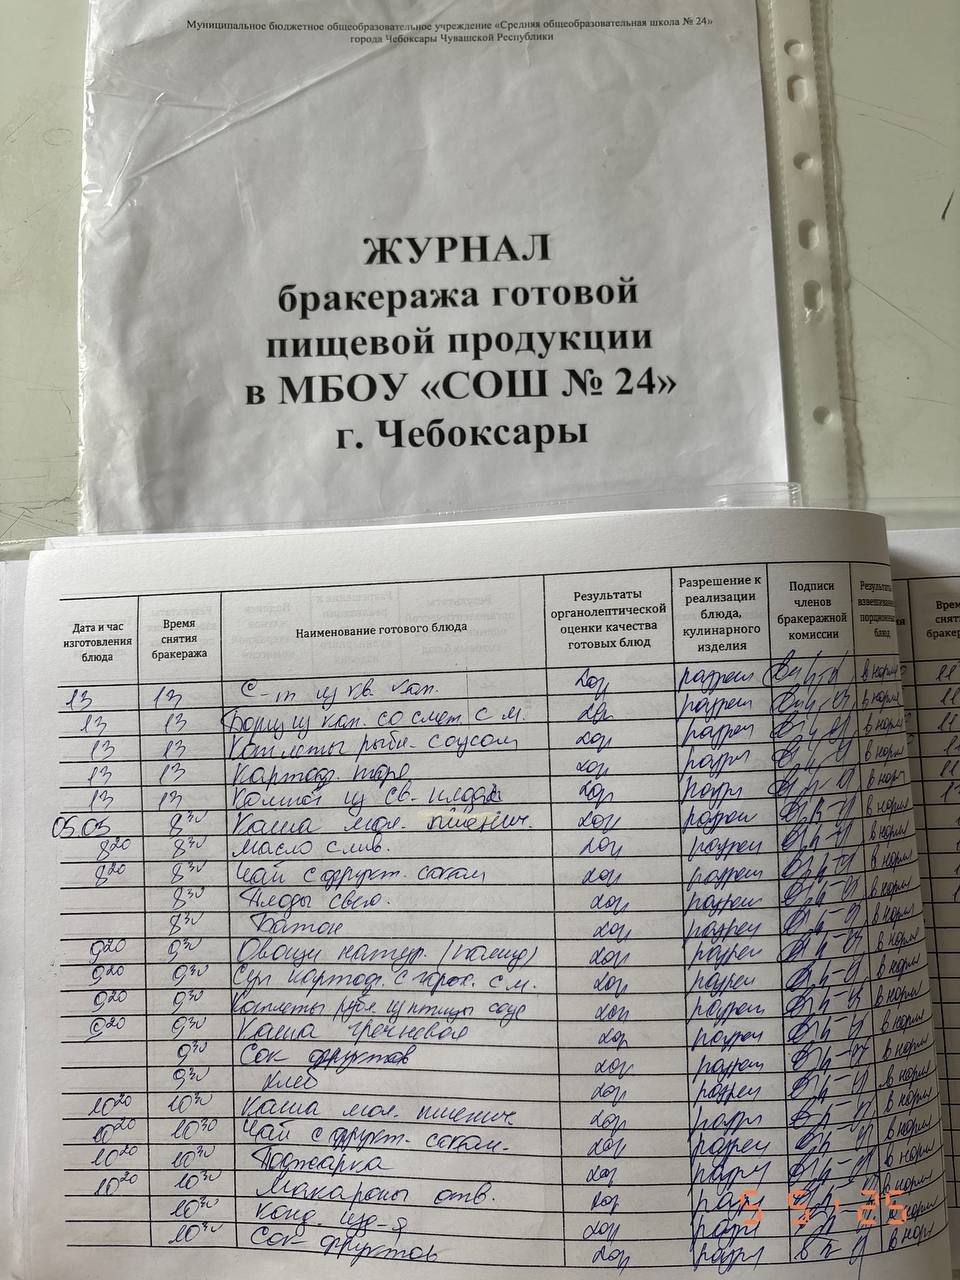 Муниципальное бюджетное общеобразовательное учреждение «Средняя общеобразовательная школа № 24»
города Чебоксары Чувашской Республики
ЖУРНАЛ
бракеража готовой
пищевой продукции
в МБОУ «СОШ № 24»
г. Чебоксары
Дата и час изготовления блюда
Время снятия бракеража
Наименование готового блюда
Результаты органолептической оценки качества готовых блюд
Разрешение к реализации блюда, кулинарного изделия
Подписи членов бракеражной комиссии
13 13 С-т из кв. кап. хор разреш в норме 11
13 13 Борщ из кап. со смет. с м. хор разреш в норме 11
13 13 Котлеты рыбн. соусом хор разреш в норм
13 13 Картоф. пюре хор разреш в норм
13 13 Компот из св. плодов хор разр в норм
05.05 8 30 Каша мол. пшенич. хор разреш в норм
8 20 8 30 Масло слив. хор разреш в норм
8 20 8 30 Чай с фрукт. соком хор разреш в норм
8 30 Плоды свеж. хор разреш в норм
8 30 Батон хор разреш в норм
9 20 9 30 Овощи натур. хор разреш в норм
9 20 9 30 Суп картоф. с горох. с м. хор разреш в норм
9 20 9 30 Котлеты рубл. из птицы соус хор разреш в норм
9 20 9 30 Каша гречневая хор разреш в норм
9 30 Сок фруктов хор разреш в норм
9 30 Хлеб хор разреш в норм
10 20 10 30 Каша мол. пшенич. хор разреш в норм
10 20 10 30 Чай с фрукт. соком. хор разр в норм
10 20 10 30 Поджарка хор разреш в норм
10 20 10 30 Макароны отв. хор разр в норм
10 30 Конд. изд-я хор разр в норм
10 30 Сок фруктов хор разр в норм
5 5 '25